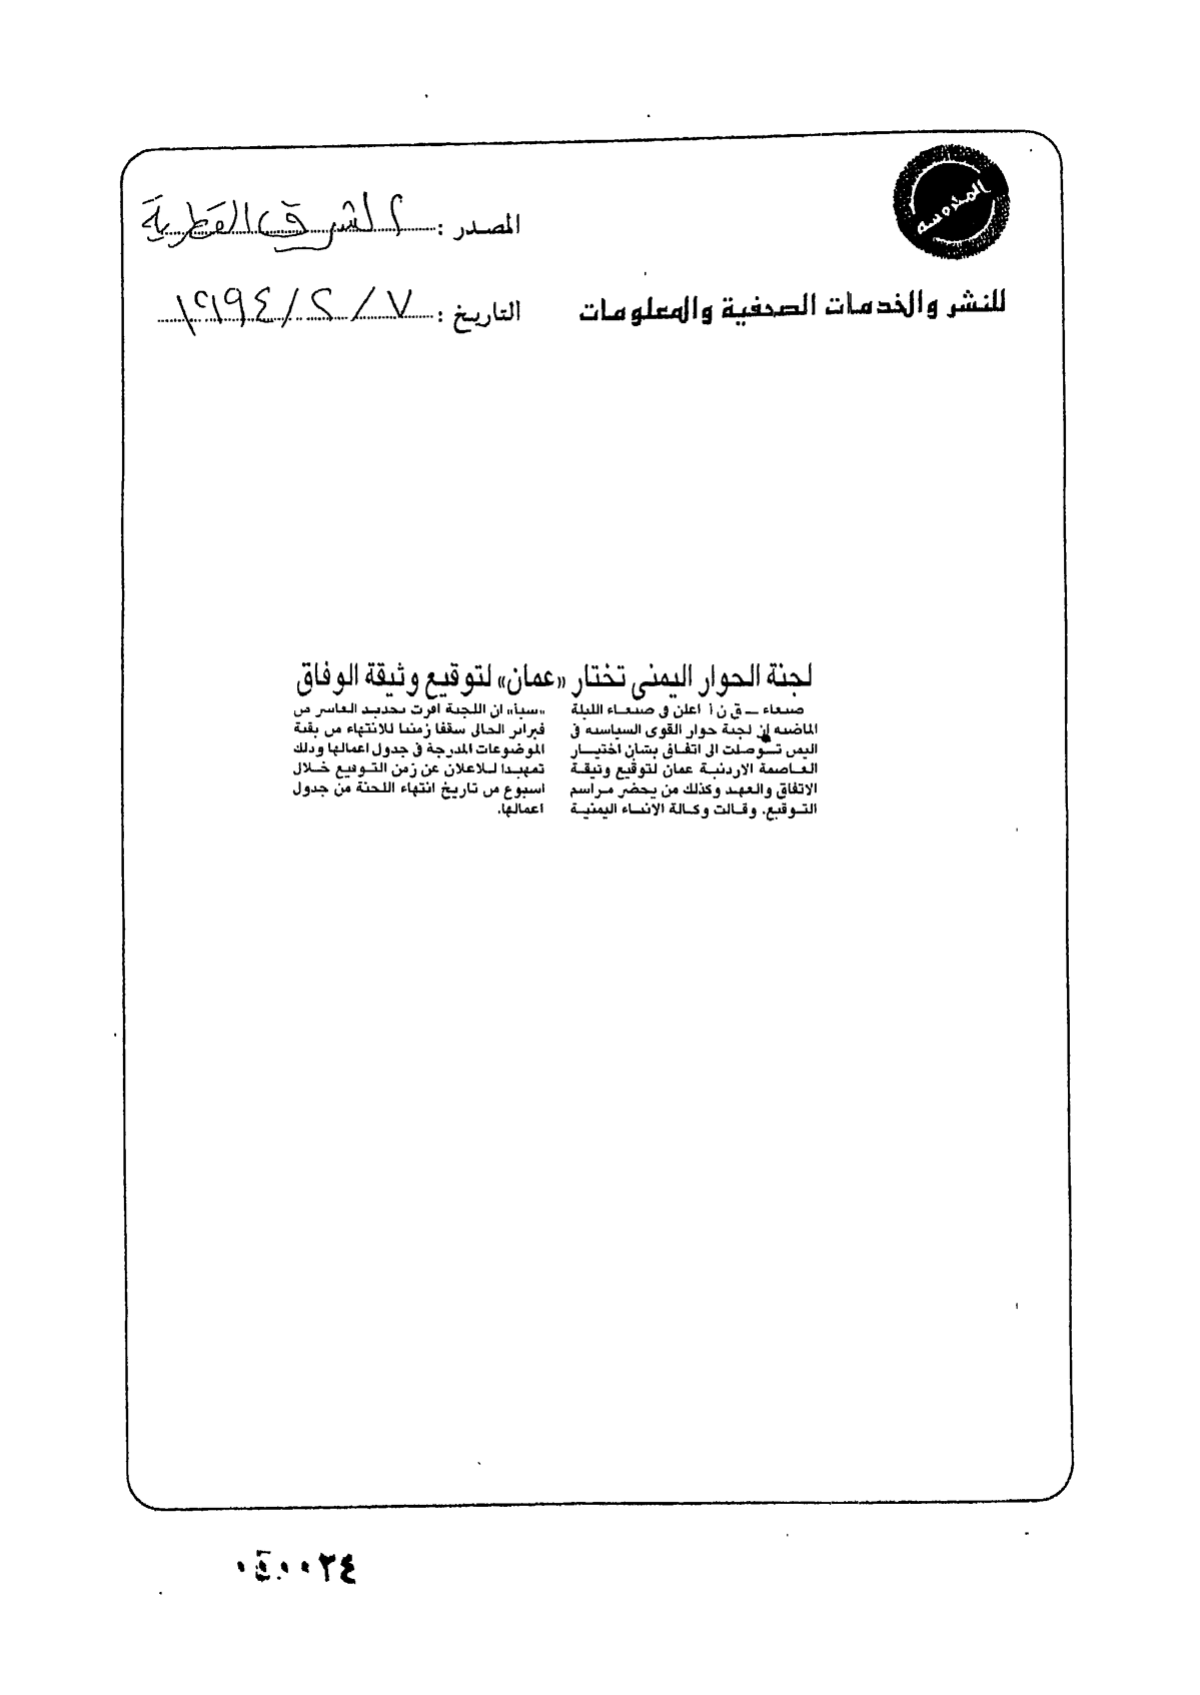 المصدر : الشرق القطرية
للنشر والخدمات الصحفية والمعلومات
التاريخ : ٧ / ٢ / ١٩٩٤
لجنة الحوار اليمنى تختار «عمان» لتوقيع وثيقة الوفاق
صنعاء ــ ق ن أ اعلن فى صنعاء الليلة
الماضية ان لجنة حوار القوى السياسية فى
اليمن توصلت الى اتفاق بشأن اختيار
العاصمة الاردنية عمان لتوقيع وثيقة
الاتفاق والعهد وكذلك من يحضر مراسم
التوقيع. وقالت وكالة الانباء اليمنية
«سبأ» ان اللجنة اقرت تحديد العاشر من
فبراير الحالى سقفا زمنيا للانتهاء من بقية
الموضوعات المدرجة فى جدول اعمالها وذلك
تمهيدا للاعلان عن زمن التوقيع خلال
اسبوع من تاريخ انتهاء اللجنة من جدول
اعمالها.